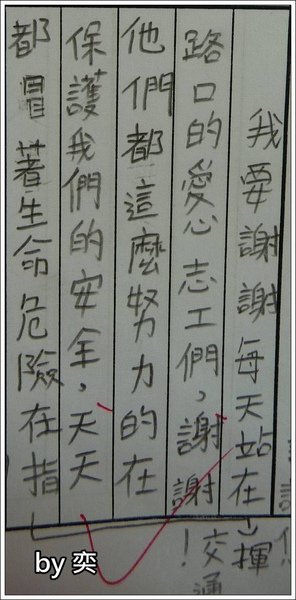 我要謝謝每天站在
路口的愛心志工們，謝謝
他們都這麼努力的在
保護我們的安全，天天
都冒著生命危險在指
揮
交通
！
by 奕